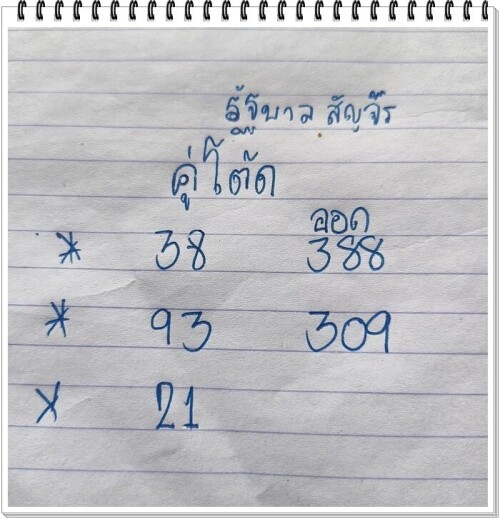 รัฐบาล สัญจร
คู่โต๊ด
ลอด
* 38 388
* 93 309
* 21